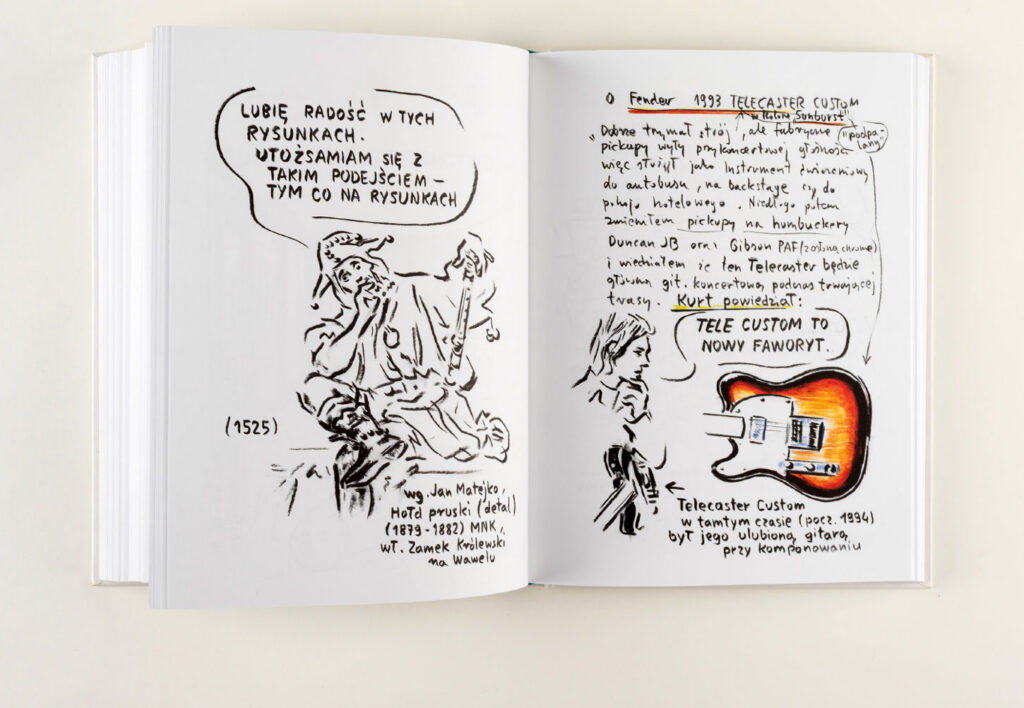 LUBIĘ RADOŚĆ W TYCH
RYSUNKACH.
UTOŻSAMIAM SIĘ Z
TAKIM PODEJŚCIEM –
TYM CO NA RYSUNKACH
(1525)
wg. Jan Matejko,
Hołd pruski (detal)
(1879-1882) MNK,
wł. Zamek Królewski
na Wawelu
O Fender 1993 TELECASTER CUSTOM
w kolorze Sunburst"
"podpa-
lany"
"Dobrze trzymał strój, ale fabryczne
pickupy wyły przy koncertowej głośności
więc służył jako instrument ćwiczeniowy
do autobusu, na backstage czy do
pokoju hotelowego. Niedługo potem
zmieniłem pickupy na humbuckery
Duncan JB oraz Gibson PAF (z osłoną chrome)
i wiedziałem że ten Telecaster będzie
główną git. koncertową podczas trwającej
trasy. Kurt powiedział:
TELE CUSTOM TO
NOWY FAWORYT.
Telecaster Custom
w tamtym czasie (pocz. 1994)
był jego ulubioną gitarą
przy komponowaniu